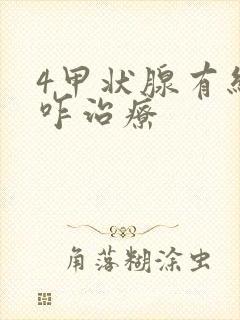 4甲状腺有结
咋治疗
角落糊涂虫